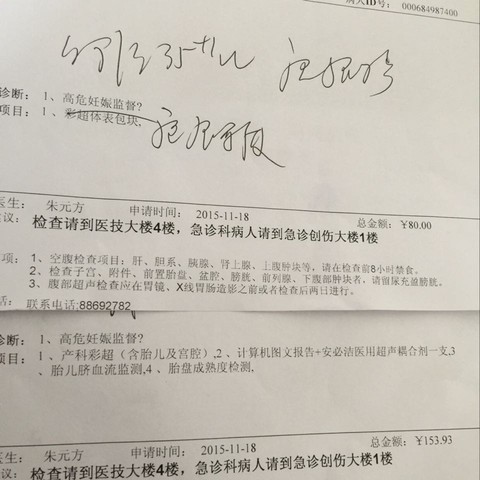 病人ID号: 000684987400
诊断: 1、高危妊娠监督?
项目: 1、彩超体表包块,
医生: 朱元方 申请时间: 2015-11-18 总金额: ¥80.00
建议: 检查请到医技大楼4楼，急诊科病人请到急诊创伤大楼1楼
项: 1、空腹检查项目: 肝、胆系、胰腺、肾上腺、上腹肿块等，请在检查前8小时禁食。
2、检查子宫、附件、前置胎盘、盆腔、膀胱、前列腺、下腹部肿块者，请留尿充盈膀胱。
3、腹部超声检查应在胃镜、X线胃肠造影之前或者检查后两日进行。
话: 联系电话;88692782
诊断: 1、高危妊娠监督?
项目: 1、产科彩超（含胎儿及宫腔）,2、计算机图文报告+安必洁医用超声耦合剂一支,3
、胎儿脐血流监测,4、胎盘成熟度检测,
医生: 朱元方 申请时间: 2015-11-18 总金额: ¥153.93
建议: 检查请到医技大楼4楼，急诊科病人请到急诊创伤大楼1楼